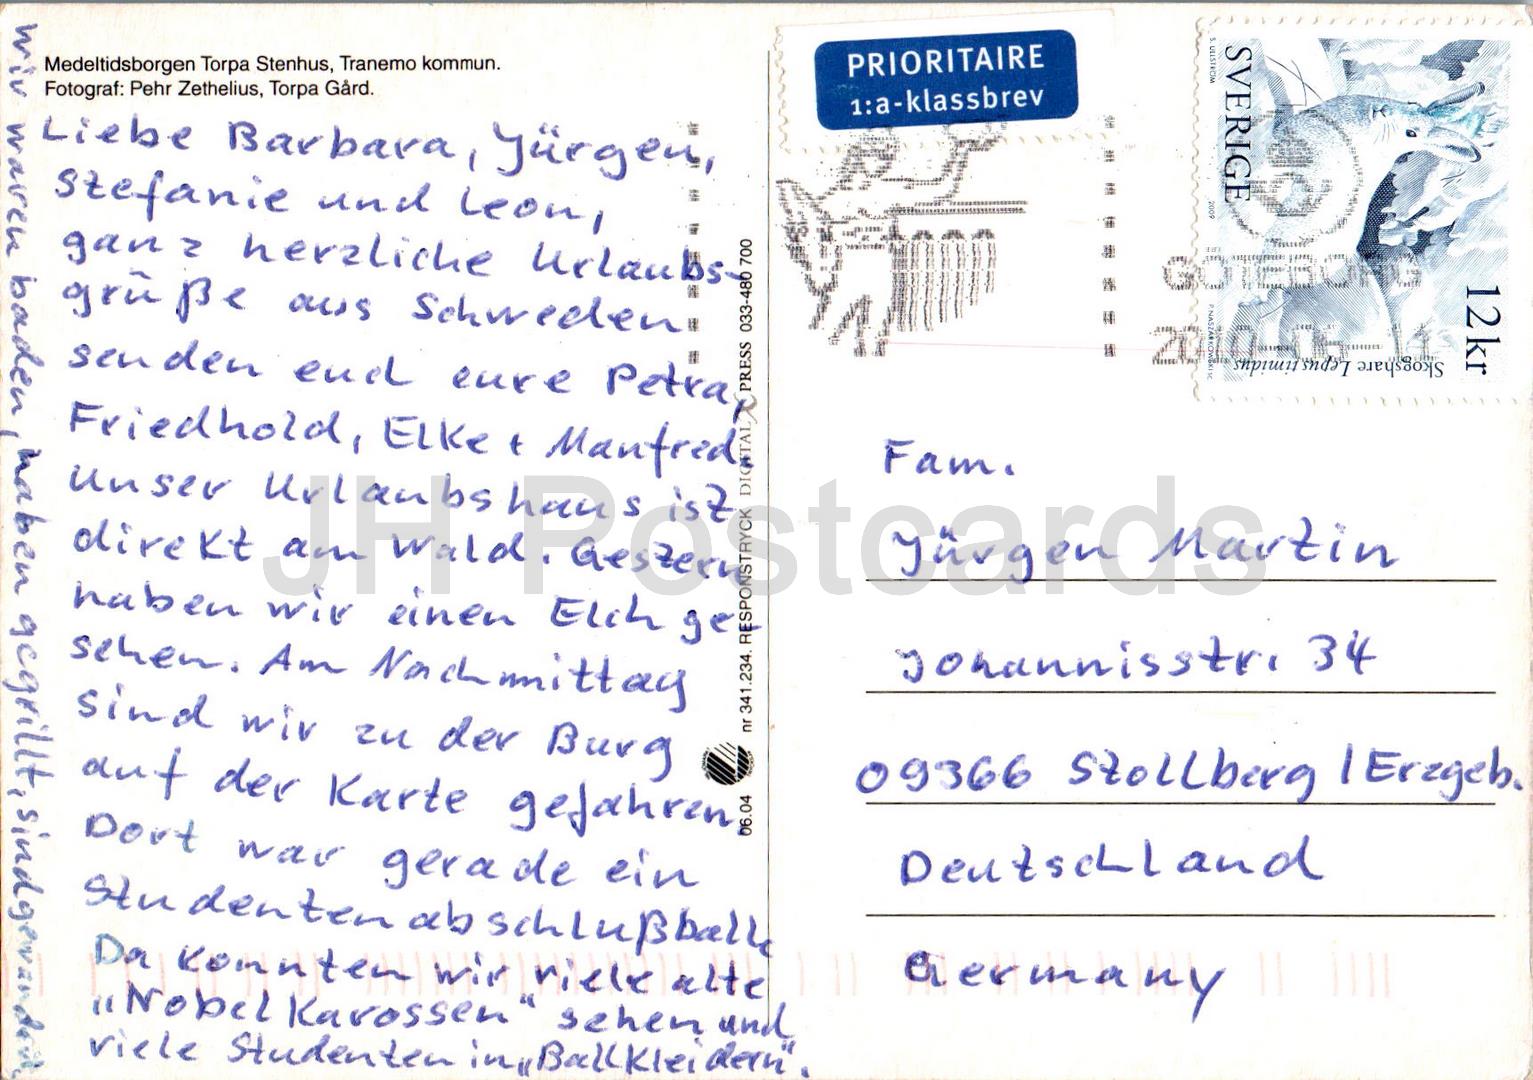 Medeltidsborgen Torpa Stenhus, Tranemo kommun.
Fotograf: Pehr Zethelius, Torpa Gård.
Liebe Barbara, Jürgen,
Stefanie und Leon,
ganz herzliche Urlaubs-
grüße aus Schweden
senden euch eure Petra,
Friedhold, Elke + Manfred.
Unser Urlaubshaus ist
direkt am Wald. Gestern
haben wir einen Elch ge-
sehen. Am Nachmittag
sind wir zu der Burg
auf der Karte gefahren.
Dort war gerade ein
Studentenabschlußball.
Da konnten wir viele alte
„Nobel Karossen“ sehen und
viele Studenten in „Ballkleidern“.
wir waren baden, haben gegrillt, sind gewandert.
06.04 nr 341.234. RESPONSTRYCK DIGITAL PRESS 033-480 700
PRIORITAIRE
1:a-klassbrev
SVERIGE
12 kr
Skogshare Lepus timidus
S. ULLSTRÖM
2009
P. NASZARKOWSKI SC
GÖTEBORG
2010-06-11
Fam.
Jürgen Martin
Johannisstr. 34
09366 Stollberg / Erzgeb.
Deutschland
Germany
JH Postcards